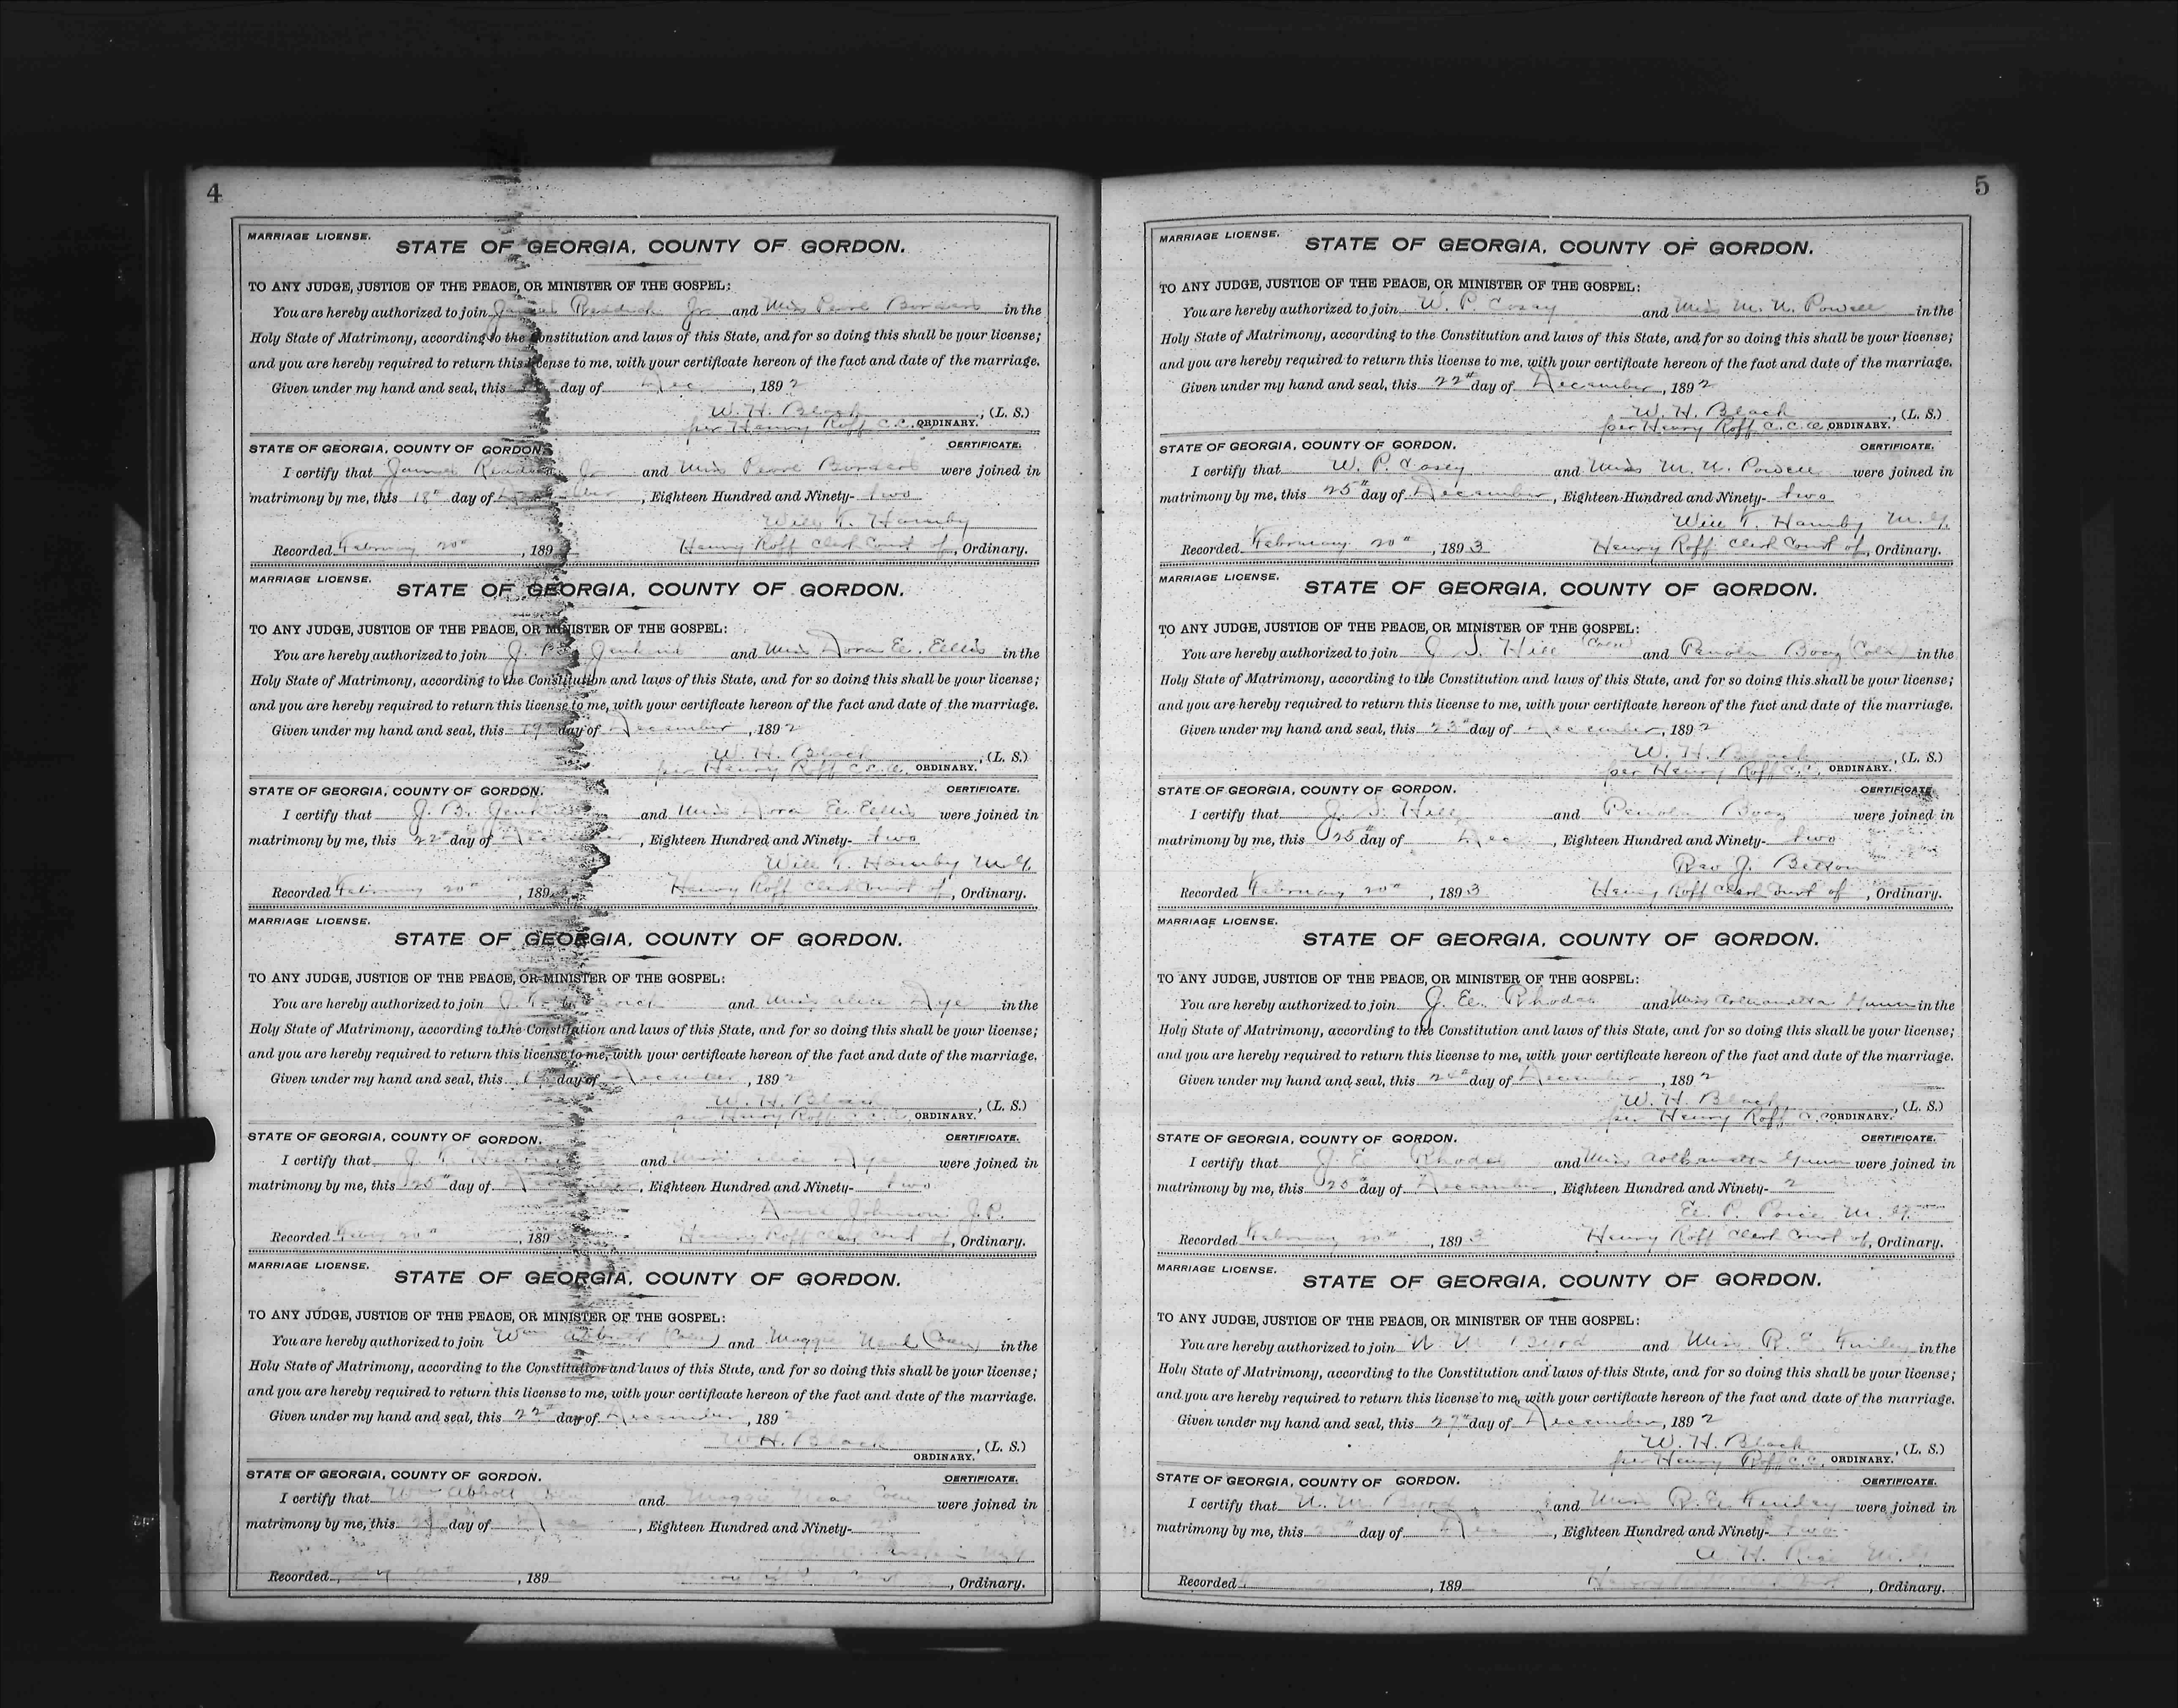 4
MARRIAGE LICENSE.
STATE OF GEORGIA, COUNTY OF GORDON.
TO ANY JUDGE, JUSTICE OF THE PEACE, OR MINISTER OF THE GOSPEL:
You are hereby authorized to join James Reddick Jr. and Miss Pearl in the
Holy State of Matrimony, according to the Constitution and laws of this State, and for so doing this shall be your license;
and you are hereby required to return this license to me, with your certificate hereon of the fact and date of the marriage.
Given under my hand and seal, this day of Dec. , 1892
W. H. Black , (L. S.)
per Henry Roff C.C.O. ORDINARY.
STATE OF GEORGIA, COUNTY OF GORDON. CERTIFICATE.
I certify that James Jr and Miss Pearl were joined in
matrimony by me, this 18th day of December , Eighteen Hundred and Ninety- two
Will T. Hamby
Recorded February 20th , 189 Henry Roff Clerk Court of , Ordinary.
MARRIAGE LICENSE.
STATE OF GEORGIA, COUNTY OF GORDON.
TO ANY JUDGE, JUSTICE OF THE PEACE, OR MINISTER OF THE GOSPEL:
You are hereby authorized to join J. B. Jenkins and Miss Dora E. Ellis in the
Holy State of Matrimony, according to the Constitution and laws of this State, and for so doing this shall be your license;
and you are hereby required to return this license to me, with your certificate hereon of the fact and date of the marriage.
Given under my hand and seal, this 19th day of December , 1892
W. H. Black , (L. S.)
per Henry Roff C.C.O. ORDINARY.
STATE OF GEORGIA, COUNTY OF GORDON. CERTIFICATE.
I certify that J. B. and Miss Dora E. Ellis were joined in
matrimony by me, this 22nd day of December , Eighteen Hundred and Ninety- two
Will T. Hamby M.G.
Recorded February 20th , 189 Henry Roff Clerk Court of , Ordinary.
MARRIAGE LICENSE.
STATE OF GEORGIA, COUNTY OF GORDON.
TO ANY JUDGE, JUSTICE OF THE PEACE, OR MINISTER OF THE GOSPEL:
You are hereby authorized to join J. and Miss Alice Dye in the
Holy State of Matrimony, according to the Constitution and laws of this State, and for so doing this shall be your license;
and you are hereby required to return this license to me, with your certificate hereon of the fact and date of the marriage.
Given under my hand and seal, this day of December , 1892
W. H. Black , (L. S.)
per Henry Roff ORDINARY.
STATE OF GEORGIA, COUNTY OF GORDON. CERTIFICATE.
I certify that J. and Miss Alice Dye were joined in
matrimony by me, this 25th day of December , Eighteen Hundred and Ninety- two
Johnson J.P.
Recorded 20th , 189 Henry Roff Clerk Court of , Ordinary.
MARRIAGE LICENSE.
STATE OF GEORGIA, COUNTY OF GORDON.
TO ANY JUDGE, JUSTICE OF THE PEACE, OR MINISTER OF THE GOSPEL:
You are hereby authorized to join Wm Abbott (Col) and Maggie Neal (Col) in the
Holy State of Matrimony, according to the Constitution and laws of this State, and for so doing this shall be your license;
and you are hereby required to return this license to me, with your certificate hereon of the fact and date of the marriage.
Given under my hand and seal, this 22nd day of December , 1892
W. H. Black , (L. S.)
ORDINARY.
STATE OF GEORGIA, COUNTY OF GORDON. CERTIFICATE.
I certify that Wm Abbott and Maggie Neal were joined in
matrimony by me, this day of Dec , Eighteen Hundred and Ninety-
Recorded , 189 , Ordinary.
5
MARRIAGE LICENSE.
STATE OF GEORGIA, COUNTY OF GORDON.
TO ANY JUDGE, JUSTICE OF THE PEACE, OR MINISTER OF THE GOSPEL:
You are hereby authorized to join W. P. Casey and Miss M. N. Powell in the
Holy State of Matrimony, according to the Constitution and laws of this State, and for so doing this shall be your license;
and you are hereby required to return this license to me, with your certificate hereon of the fact and date of the marriage.
Given under my hand and seal, this 22nd day of December , 1892
W. H. Black , (L. S.)
per Henry Roff C.C.O. ORDINARY.
STATE OF GEORGIA, COUNTY OF GORDON. CERTIFICATE.
I certify that W. P. Casey and Miss M. N. Powell were joined in
matrimony by me, this 25th day of December , Eighteen Hundred and Ninety- two
Will T. Hamby M.G.
Recorded February 20th , 1893 Henry Roff Clerk Court of , Ordinary.
MARRIAGE LICENSE.
STATE OF GEORGIA, COUNTY OF GORDON.
TO ANY JUDGE, JUSTICE OF THE PEACE, OR MINISTER OF THE GOSPEL:
You are hereby authorized to join J. S. Hill (Col) and Penola (Col) in the
Holy State of Matrimony, according to the Constitution and laws of this State, and for so doing this shall be your license;
and you are hereby required to return this license to me, with your certificate hereon of the fact and date of the marriage.
Given under my hand and seal, this 23rd day of December , 1892
W. H. Black , (L. S.)
per Henry Roff C.C. ORDINARY.
STATE OF GEORGIA, COUNTY OF GORDON. CERTIFICATE.
I certify that J. S. Hill and Penola were joined in
matrimony by me, this 25th day of Dec , Eighteen Hundred and Ninety- two
Rev J.
Recorded February 20th , 1893 Henry Roff Clerk Court of , Ordinary.
MARRIAGE LICENSE.
STATE OF GEORGIA, COUNTY OF GORDON.
TO ANY JUDGE, JUSTICE OF THE PEACE, OR MINISTER OF THE GOSPEL:
You are hereby authorized to join J. E. Rhodes and Miss Gunn in the
Holy State of Matrimony, according to the Constitution and laws of this State, and for so doing this shall be your license;
and you are hereby required to return this license to me, with your certificate hereon of the fact and date of the marriage.
Given under my hand and seal, this 24th day of December , 1892
W. H. Black , (L. S.)
per Henry Roff C.C. ORDINARY.
STATE OF GEORGIA, COUNTY OF GORDON. CERTIFICATE.
I certify that J. E. Rhodes and Miss Gunn were joined in
matrimony by me, this 25th day of December , Eighteen Hundred and Ninety- 2
E. P. Price M.G.
Recorded February 20th , 1893 Henry Roff Clerk Court of , Ordinary.
MARRIAGE LICENSE.
STATE OF GEORGIA, COUNTY OF GORDON.
TO ANY JUDGE, JUSTICE OF THE PEACE, OR MINISTER OF THE GOSPEL:
You are hereby authorized to join Byrd and Miss R. E. in the
Holy State of Matrimony, according to the Constitution and laws of this State, and for so doing this shall be your license;
and you are hereby required to return this license to me, with your certificate hereon of the fact and date of the marriage.
Given under my hand and seal, this 27th day of December , 1892
W. H. Black , (L. S.)
per Henry Roff C.C. ORDINARY.
STATE OF GEORGIA, COUNTY OF GORDON. CERTIFICATE.
I certify that Byrd and Miss R. E. were joined in
matrimony by me, this day of Dec , Eighteen Hundred and Ninety- two
A. H. Rice M.G.
Recorded , 189 , Ordinary.